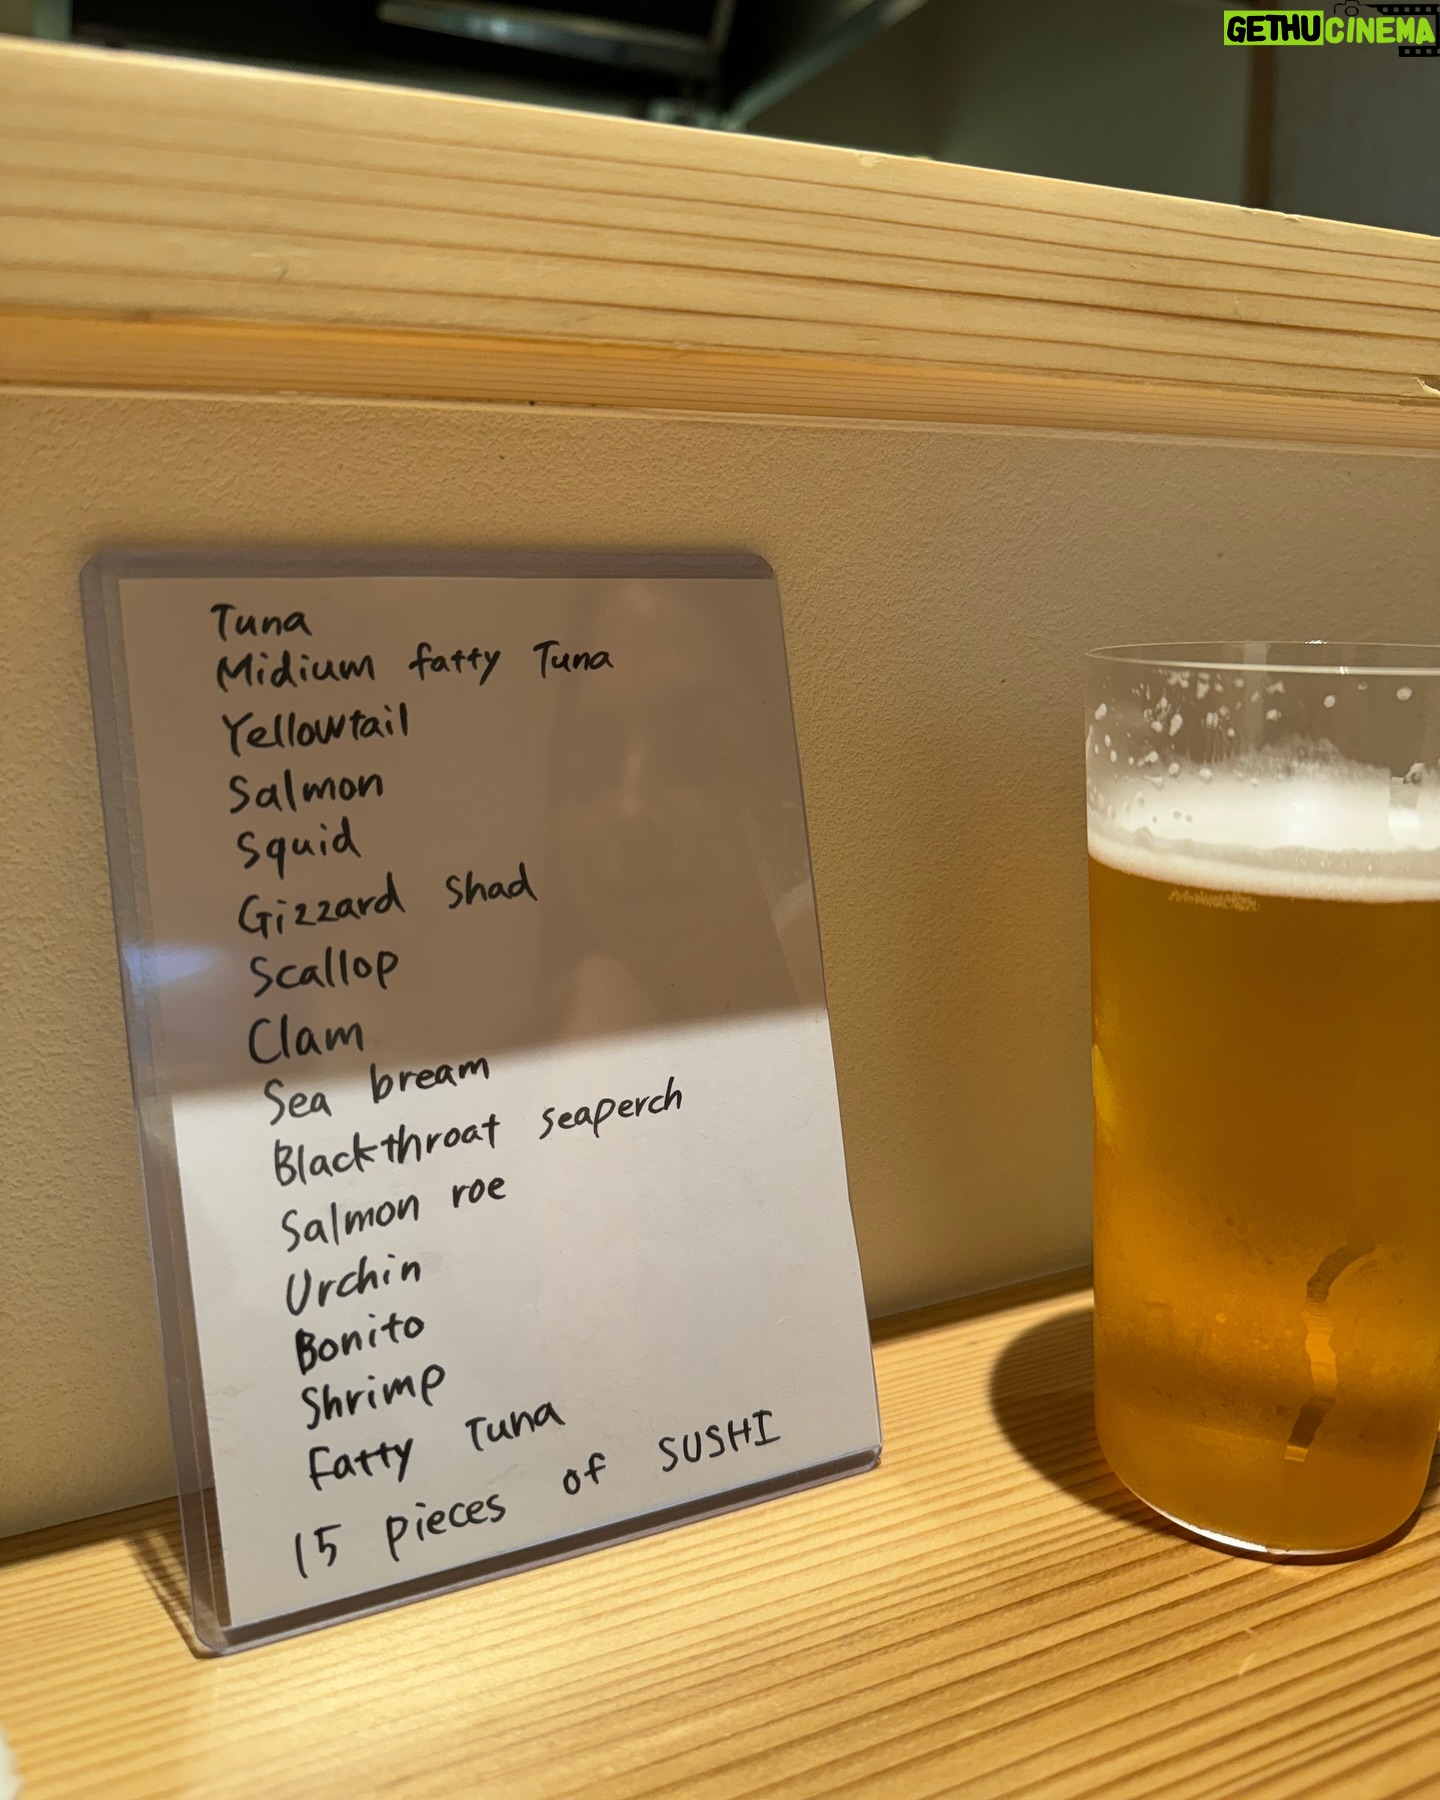 GETHUCINEMA
Tuna
Midium fatty Tuna
Yellowtail
Salmon
Squid
Gizzard shad
Scallop
Clam
Sea bream
Blackthroat seaperch
Salmon roe
Urchin
Bonito
Shrimp
Fatty Tuna
15 pieces of SUSHI